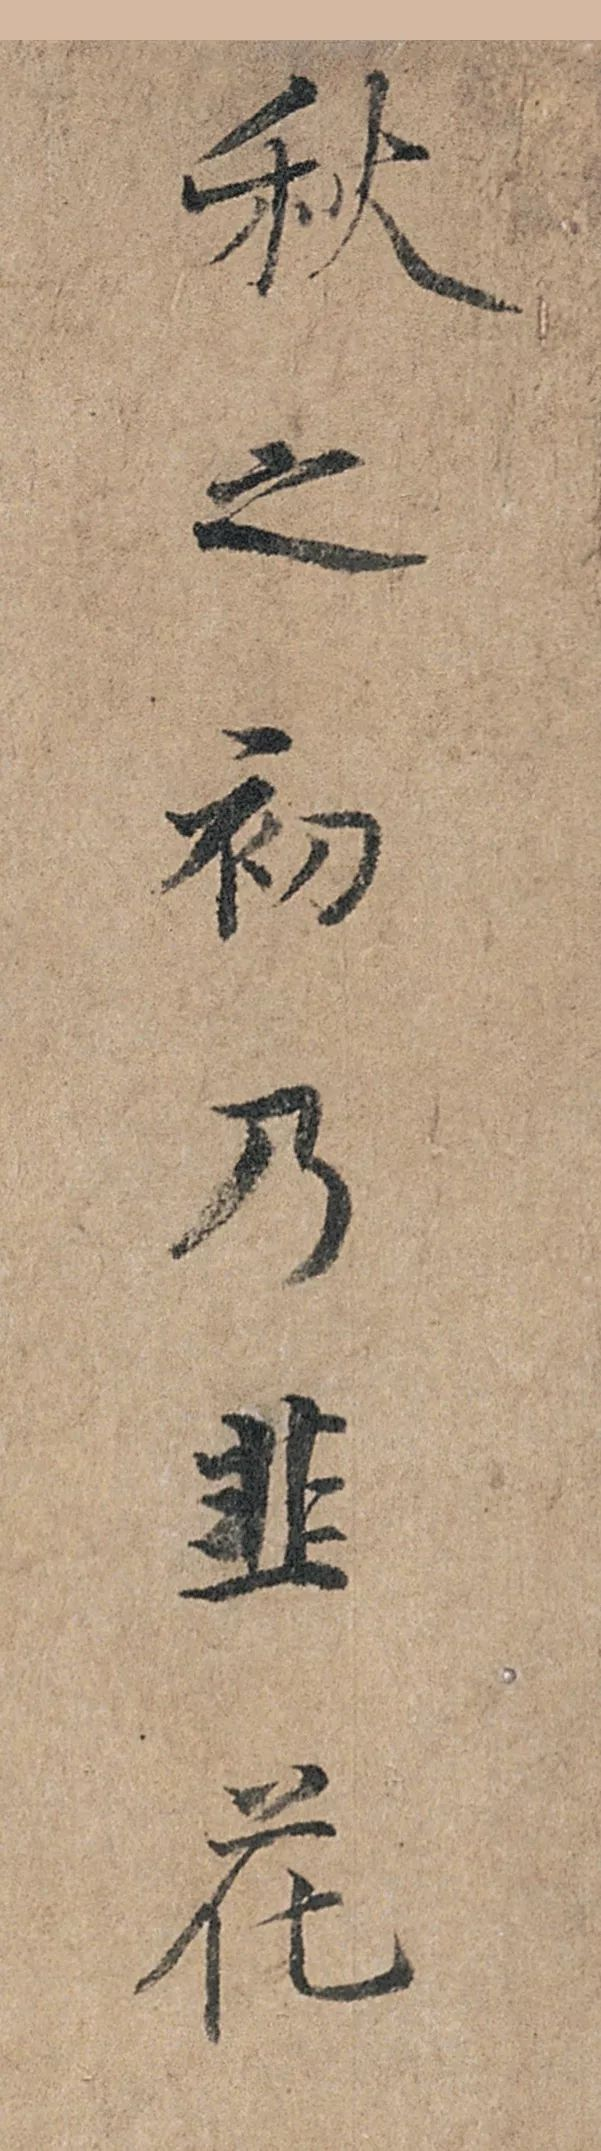 秋之初乃韭花